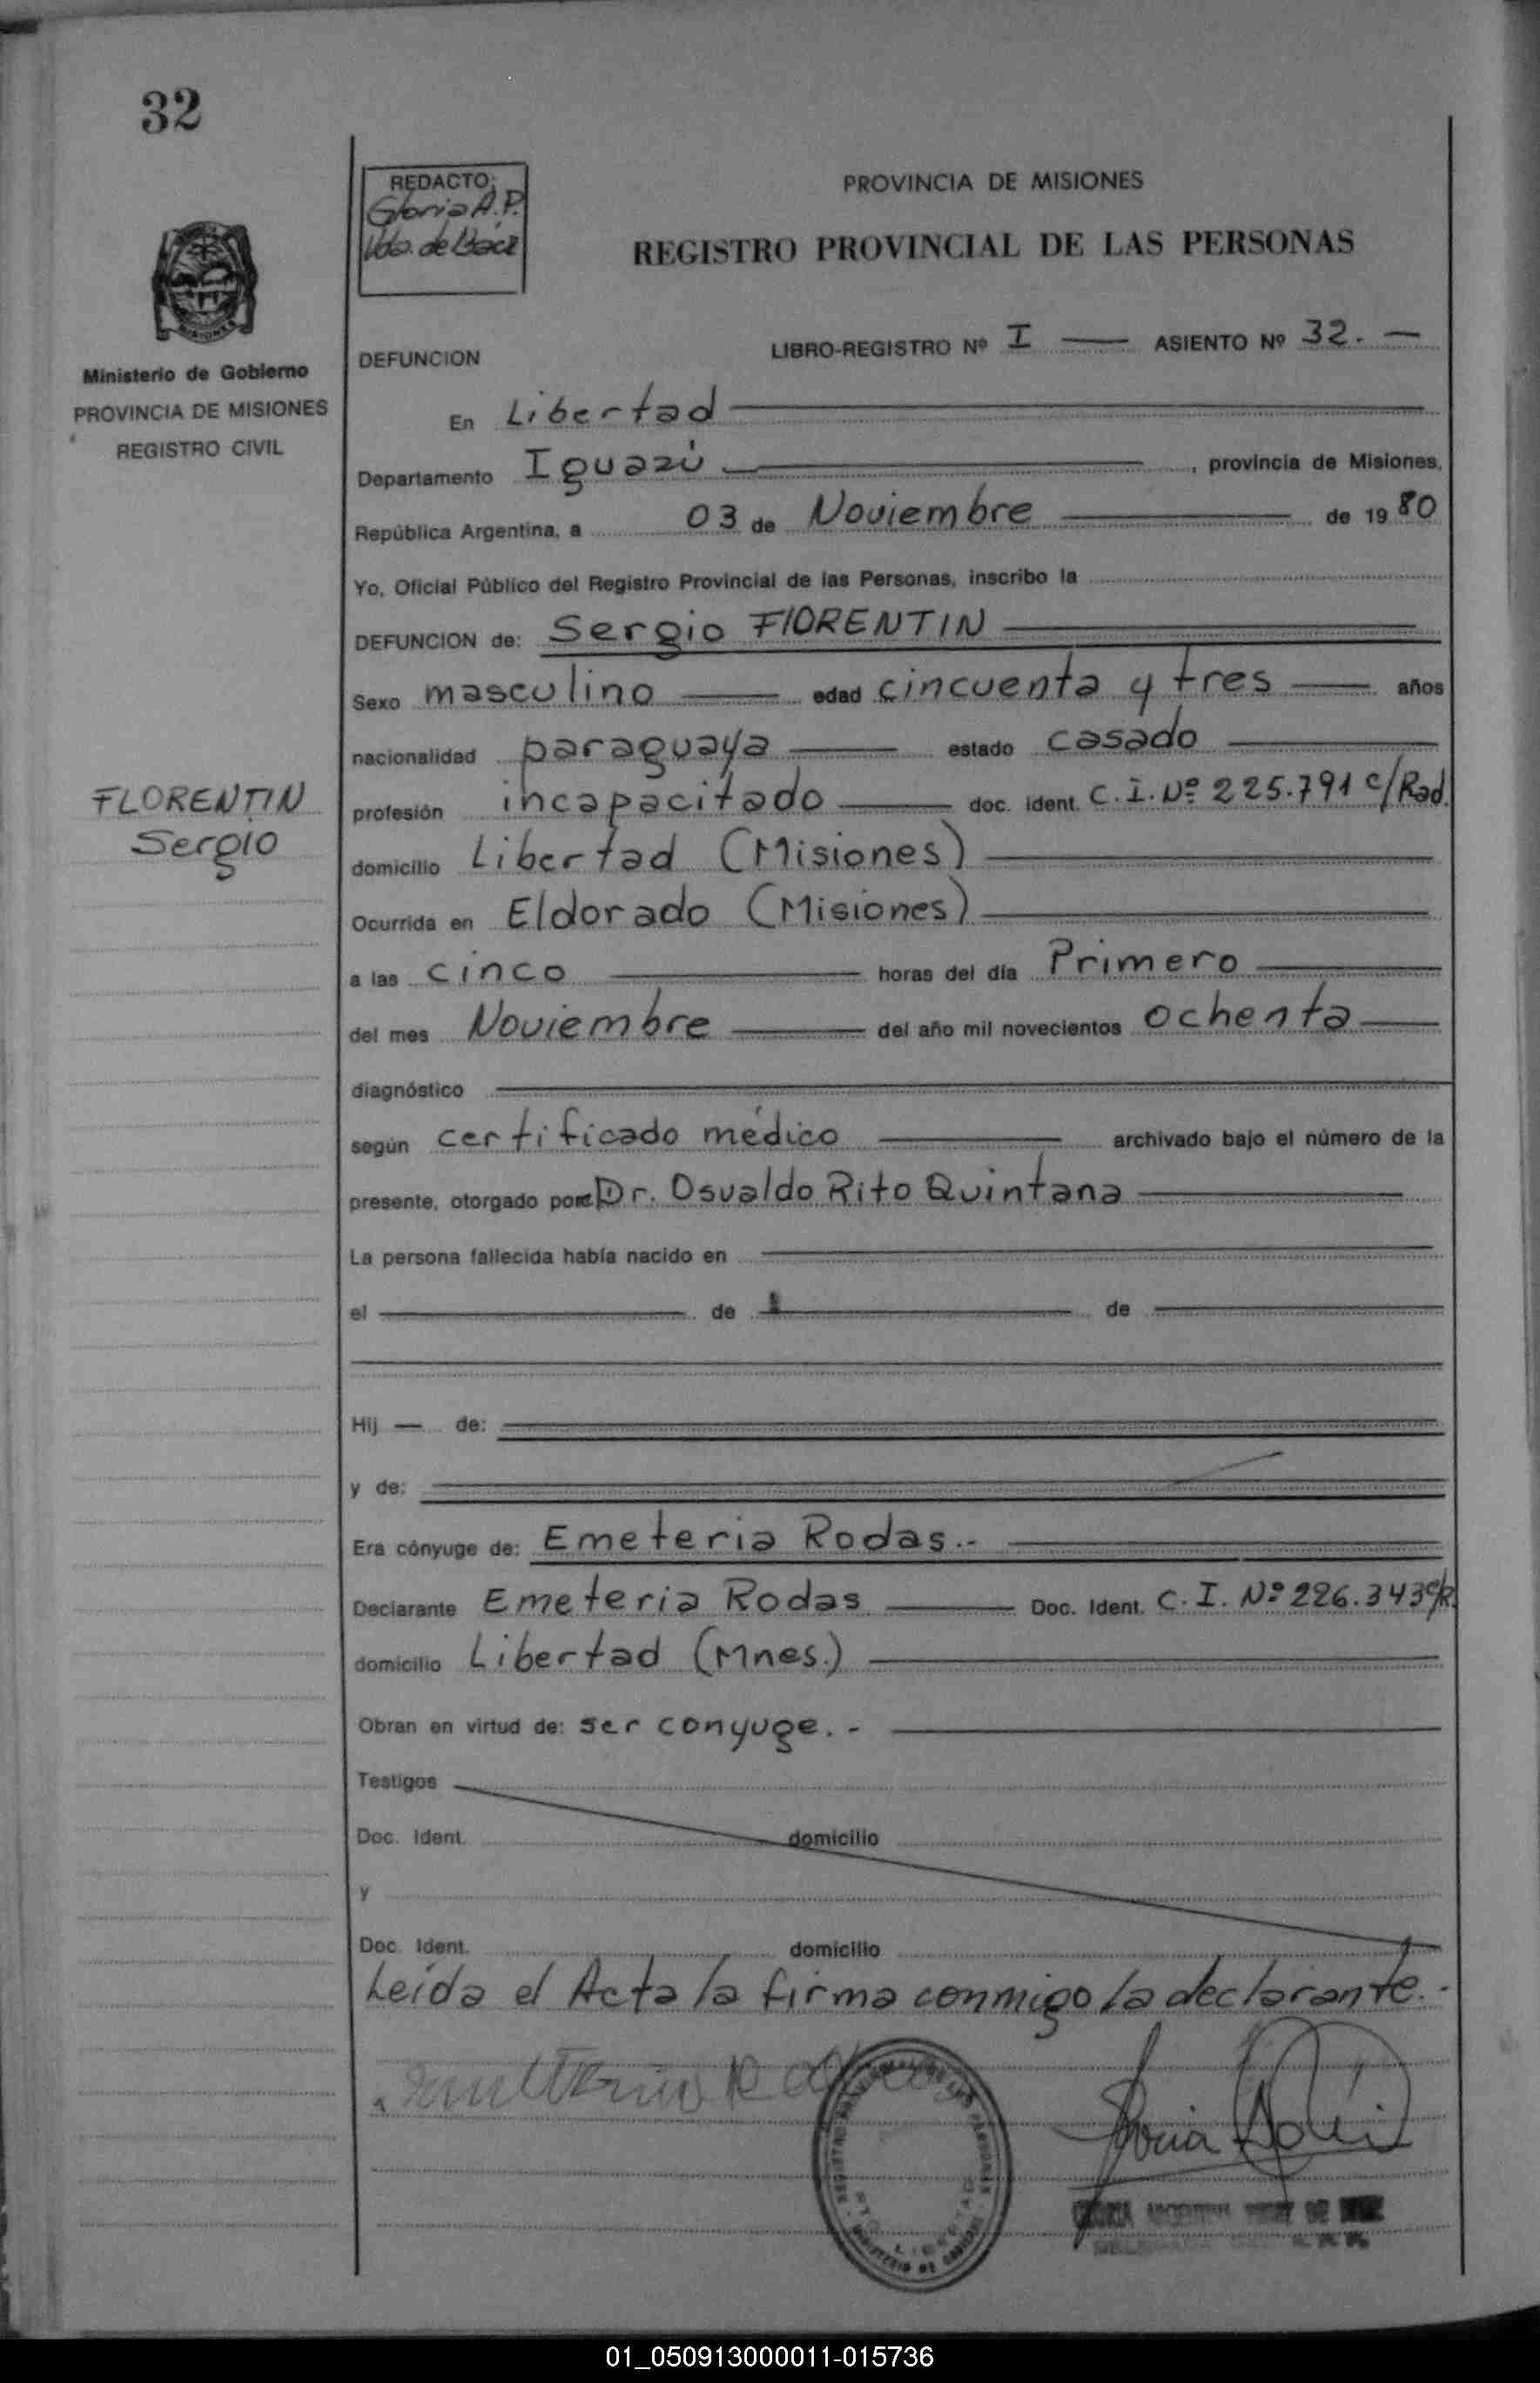 32
REDACTO:
Gloria A.P.
Vda. de Báez
PROVINCIA DE MISIONES
REGISTRO PROVINCIAL DE LAS PERSONAS
Ministerio de Gobierno
PROVINCIA DE MISIONES
REGISTRO CIVIL
DEFUNCION LIBRO-REGISTRO Nº I ASIENTO Nº 32. —
En Libertad
Departamento Iguazú , provincia de Misiones,
República Argentina, a 03 de Noviembre de 1980
Yo, Oficial Público del Registro Provincial de las Personas, inscribo la
DEFUNCION de: Sergio FlORENTIN
Sexo masculino edad cincuenta y tres años
nacionalidad paraguaya estado casado
FLORENTIN
Sergio
profesión incapacitado doc. ident. C.I. Nº 225.791 c/Rad.
domicilio Libertad (Misiones)
Ocurrida en Eldorado (Misiones)
a las cinco horas del día Primero
del mes Noviembre del año mil novecientos ochenta
diagnóstico
según certificado médico archivado bajo el número de la
presente, otorgado por Dr. Osvaldo Rito Quintana
La persona fallecida había nacido en
el de de
Hij — de:
y de:
Era cónyuge de: Emeteria Rodas.-
Declarante Emeteria Rodas Doc. Ident. C.I. Nº 226.343 c/R.
domicilio Libertad (Mnes.)
Obran en virtud de: ser conyuge. -
Testigos
Doc. Ident. domicilio
y
Doc. Ident. domicilio
Leída el Acta la firma conmigo la declarante. -
LIBERTAD
MINISTERIO DE GOBIERNO
01_050913000011-015736